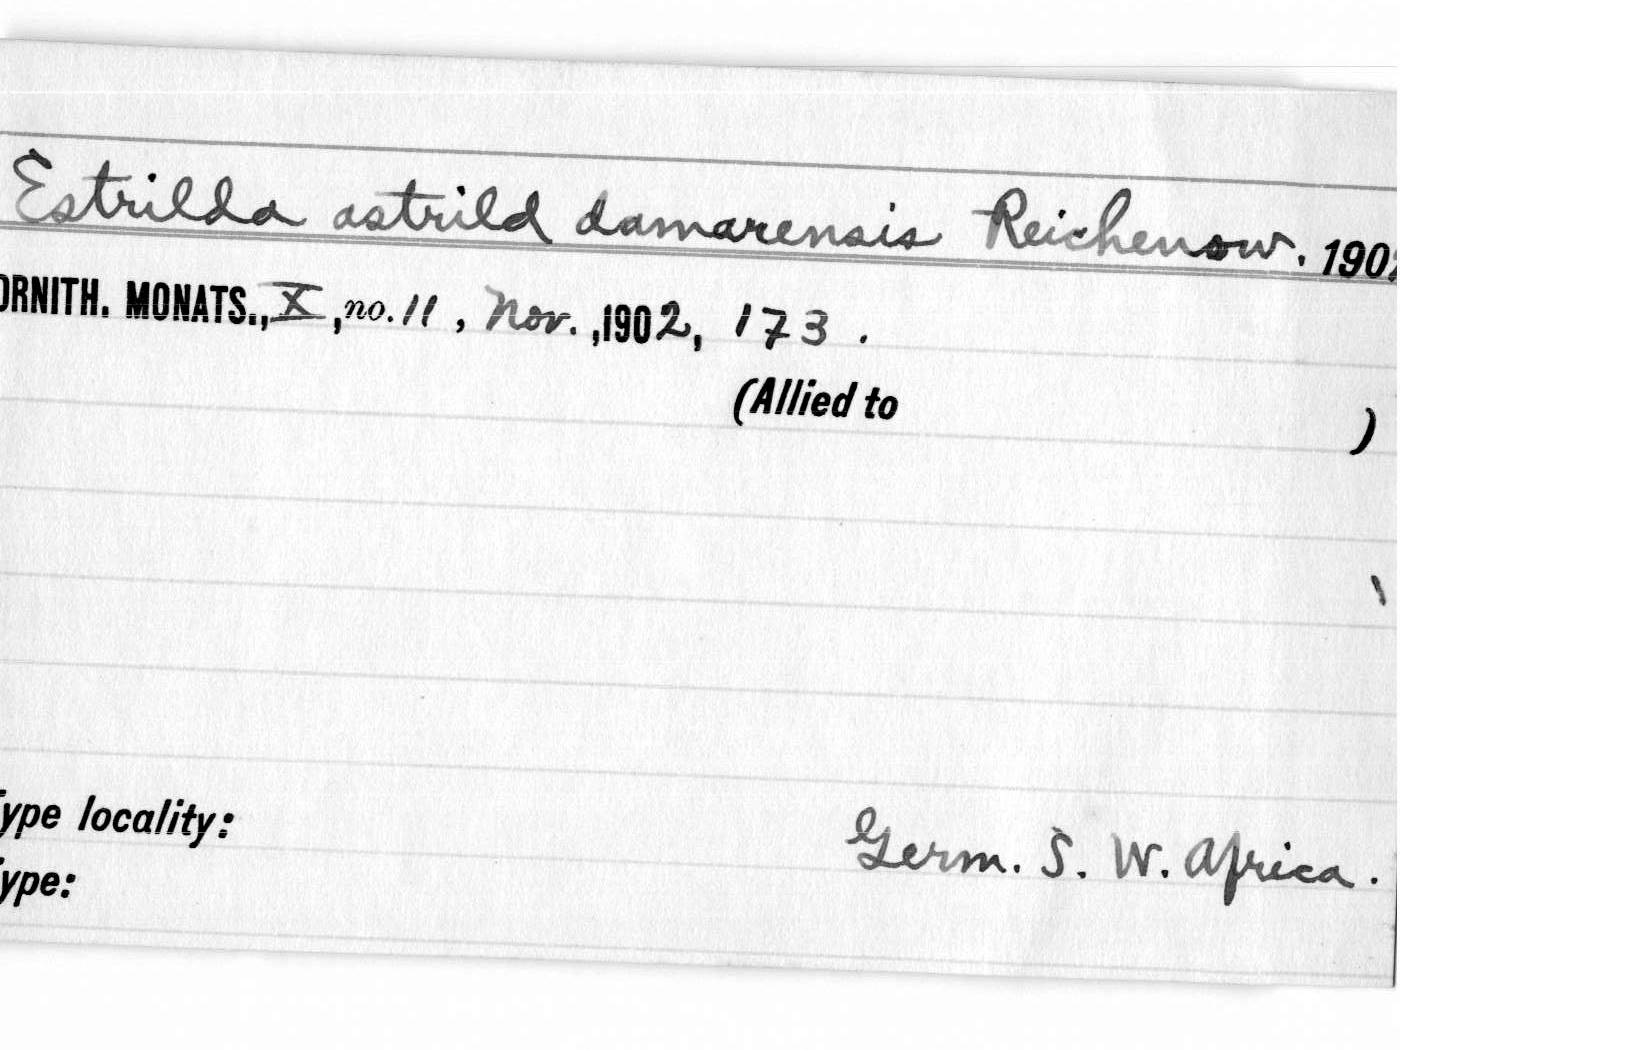 Estrilda astrild damarensis Reichenow. 1902
ORNITH. MONATS., X, no. 11, Nov., 1902, 173.
(Allied to )
Type locality: Germ. S. W. Africa.
Type: